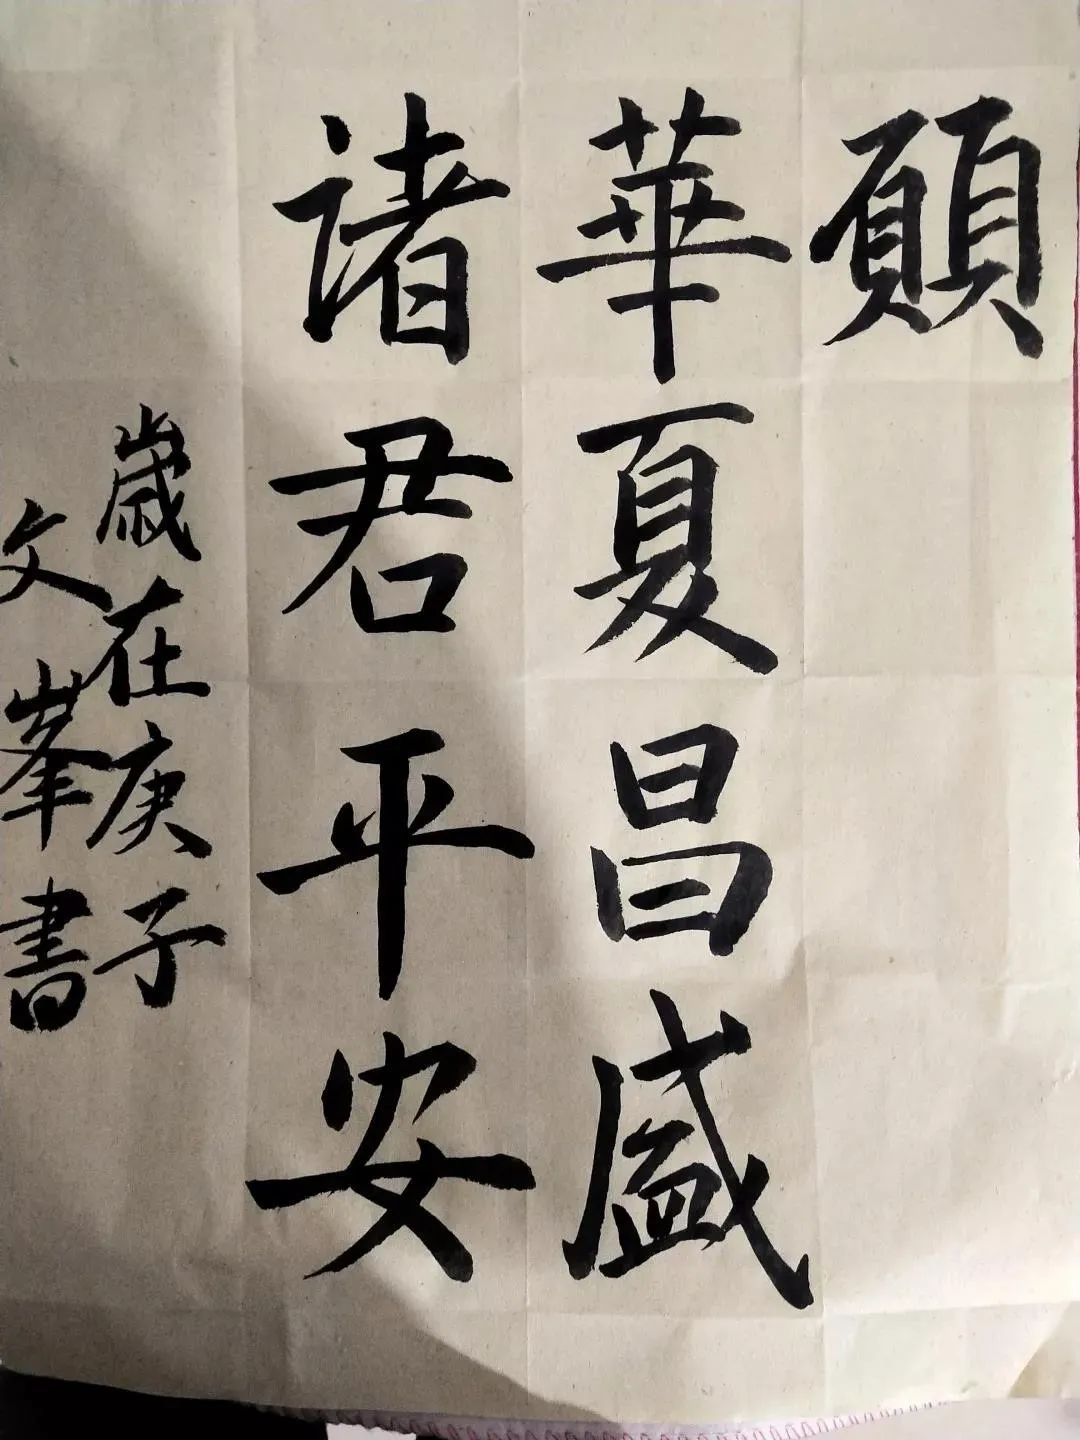 願
華夏昌盛
诸君平安
歲在庚子
文峯書